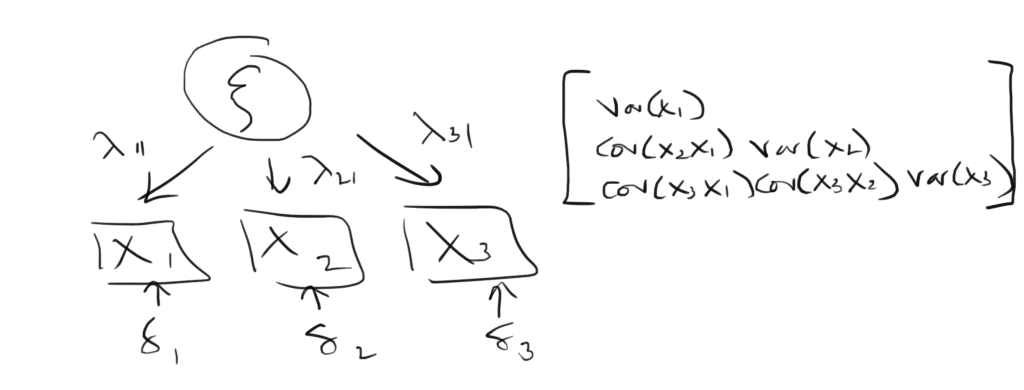 ξ
λ11 λ21 λ31
X1 X2 X3
δ1 δ2 δ3
Var(X1)
Cov(X2X1) Var(X2)
Cov(X3X1) Cov(X3X2) Var(X3)